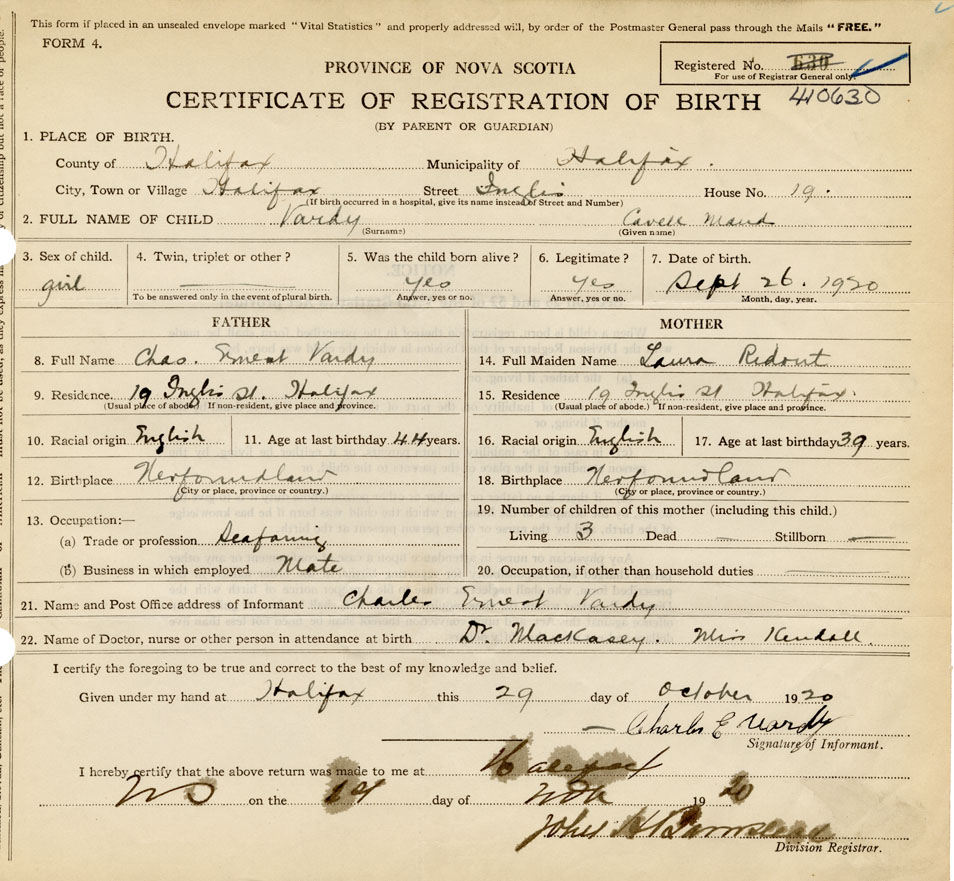 This form if placed in an unsealed envelope marked "Vital Statistics" and properly addressed will, by order of the Postmaster General pass through the Mails "FREE."
FORM 4.
Registered No. 630
For use of Registrar General only.
410630
PROVINCE OF NOVA SCOTIA
CERTIFICATE OF REGISTRATION OF BIRTH
(BY PARENT OR GUARDIAN)
1. PLACE OF BIRTH.
County of Halifax Municipality of Halifax.
City, Town or Village Halifax Street Inglis House No. 19.
(If birth occurred in a hospital, give its name instead of Street and Number)
2. FULL NAME OF CHILD Vardy Cavell Maud
(Surname) (Given name)
3. Sex of child. 4. Twin, triplet or other? 5. Was the child born alive? 6. Legitimate? 7. Date of birth.
girl Yes Yes Sept 26. 1920
To be answered only in the event of plural birth. Answer, yes or no. Answer, yes or no. Month, day, year.
FATHER MOTHER
8. Full Name Chas. Ernest Vardy 14. Full Maiden Name Laura Ridout
9. Residence. 19 Inglis St. Halifax 15. Residence 19 Inglis St Halifax.
(Usual place of abode.) If non-resident, give place and province. (Usual place of abode.) If non-resident, give place and province.
10. Racial origin English 11. Age at last birthday 44 years. 16. Racial origin English 17. Age at last birthday 39 years.
12. Birthplace Newfoundland 18. Birthplace Newfoundland
(City or place, province or country.) (City or place, province or country.)
13. Occupation:— 19. Number of children of this mother (including this child.)
(a) Trade or profession Seafaring Living 3 Dead — Stillborn —
(b) Business in which employed Mate 20. Occupation, if other than household duties
21. Name and Post Office address of Informant Charles Ernest Vardy
22. Name of Doctor, nurse or other person in attendance at birth Dr. MacKasey. Miss Kendall.
I certify the foregoing to be true and correct to the best of my knowledge and belief.
Given under my hand at Halifax this 29 day of October 1920
— Charles E Vardy
Signature of Informant.
I hereby certify that the above return was made to me at Halifax
on the day of 1920
John H Barnstead
Division Registrar.